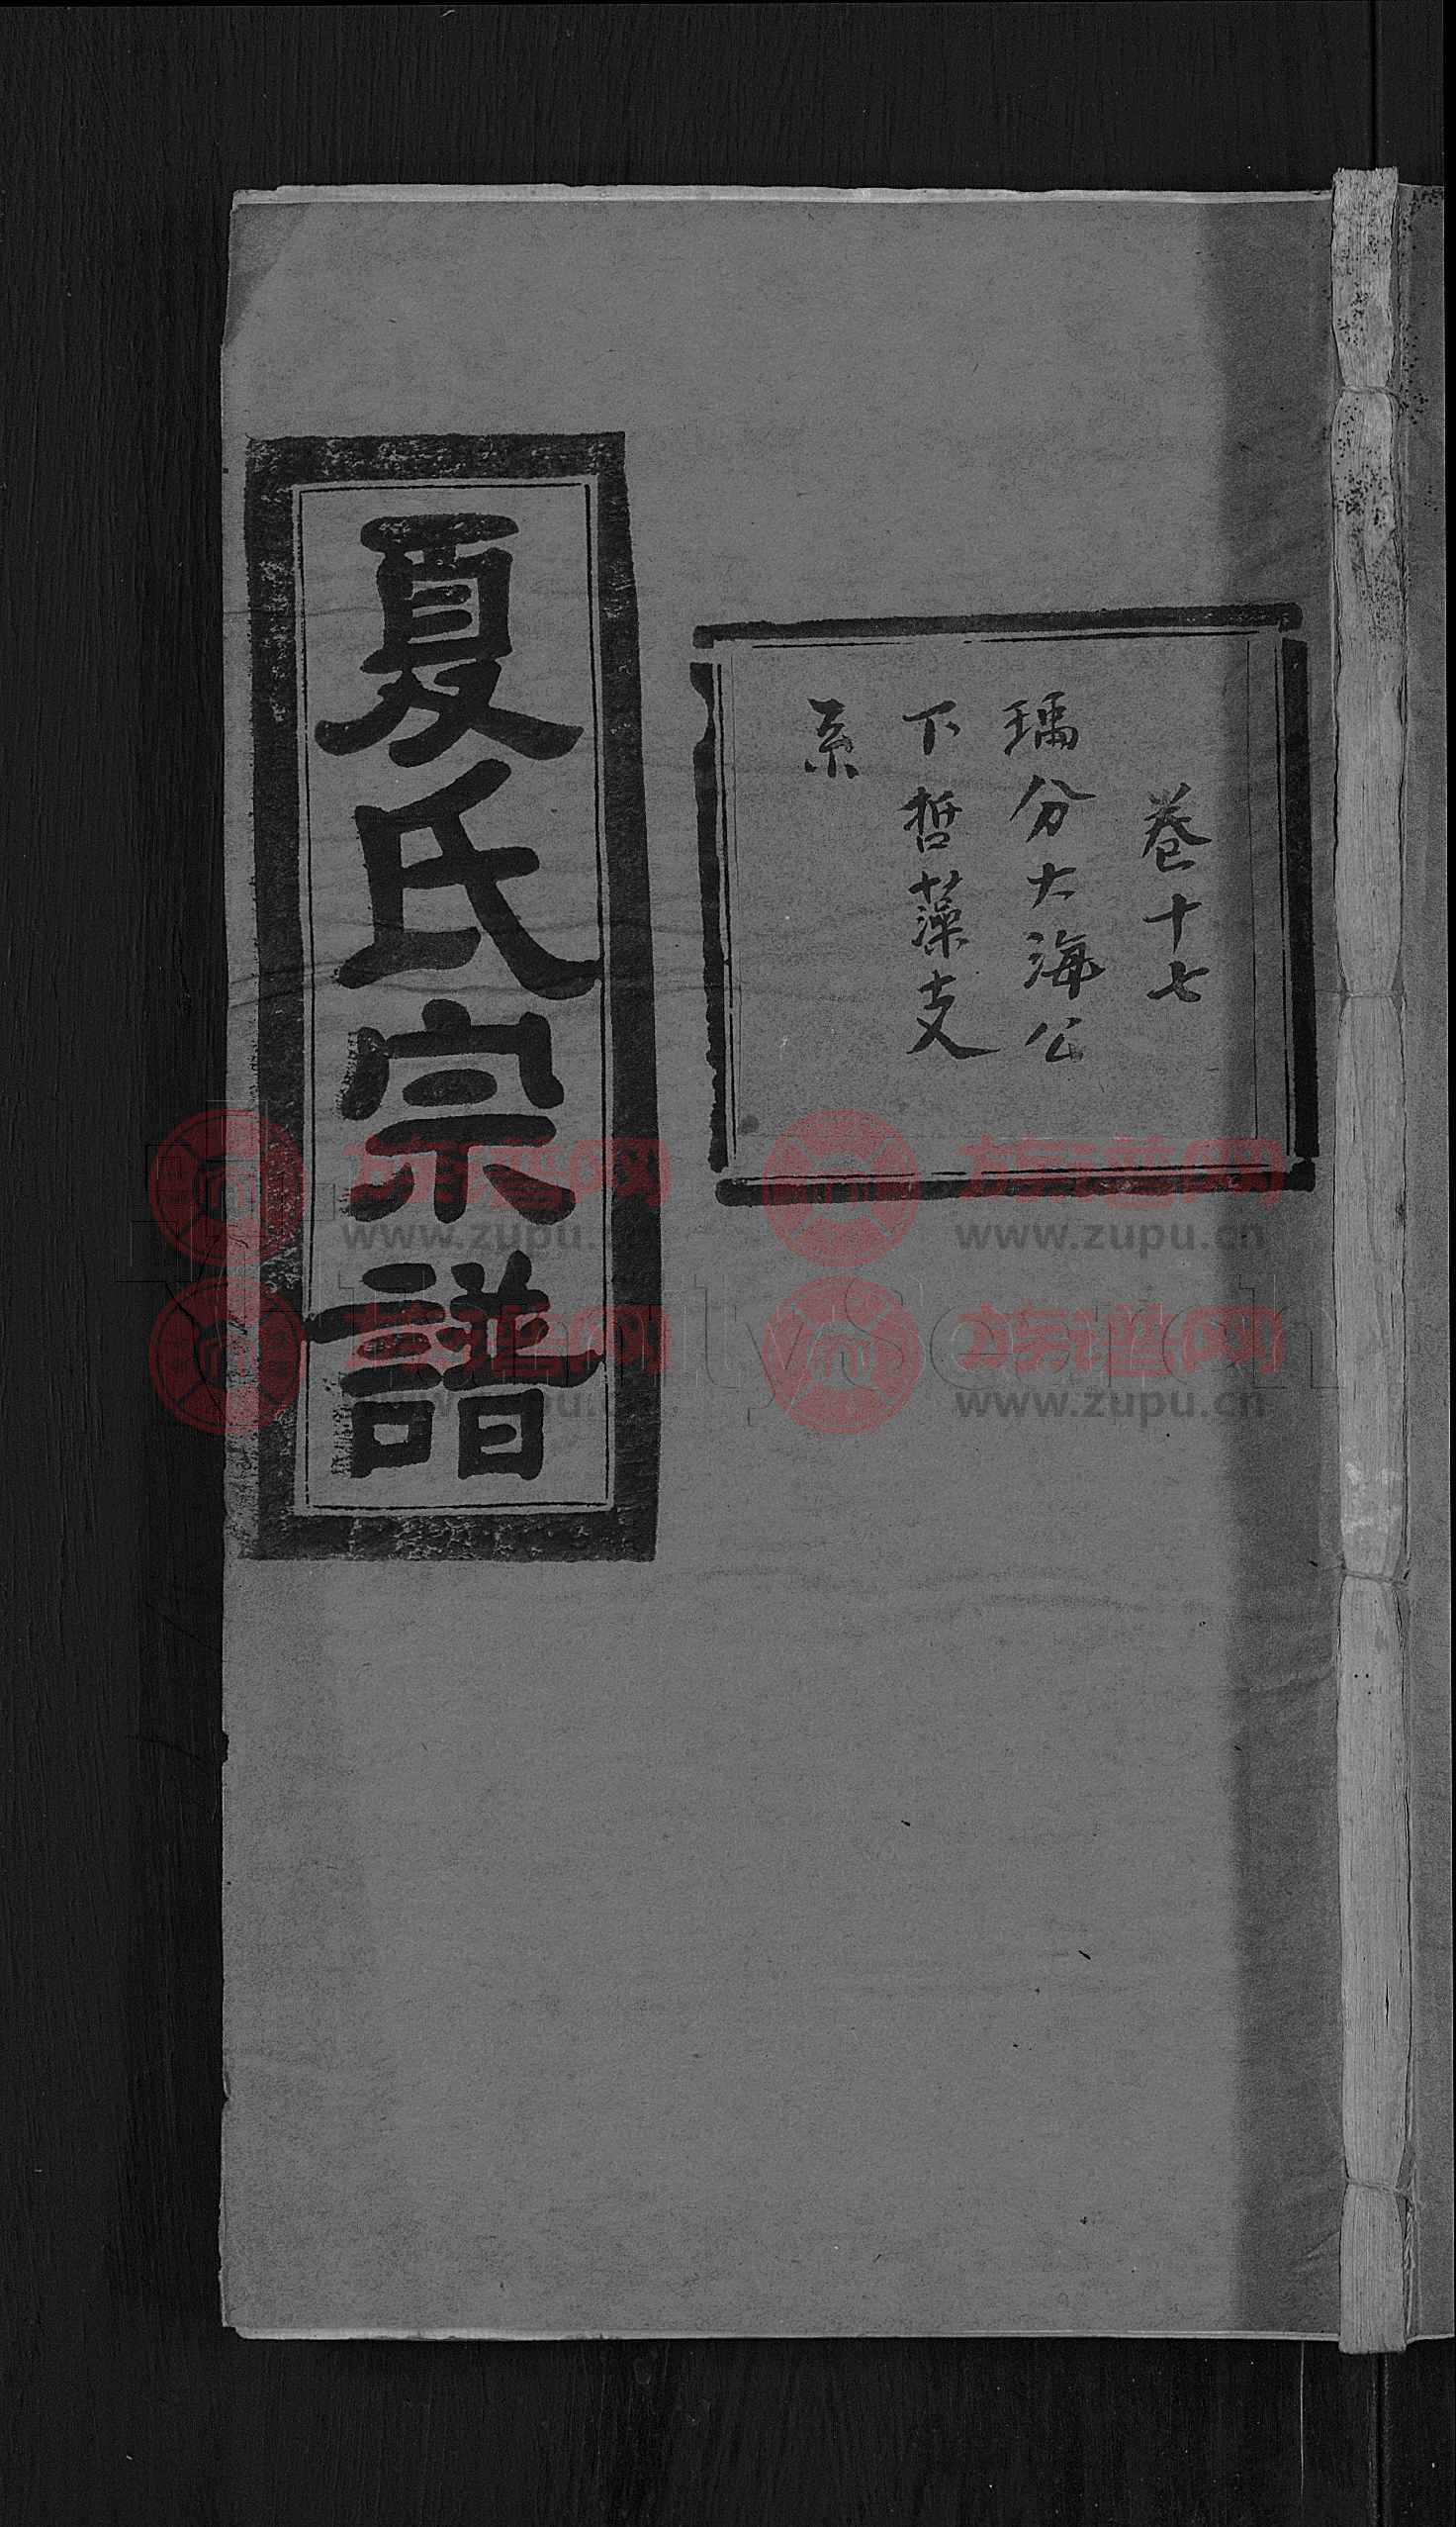 卷十七
瑀分大海公
下哲藻支
系
夏氏宗譜
族谱网 www.zupu.cn
族谱网 www.zupu.cn
族谱网 www.zupu.cn
族谱网 www.zupu.cn
FamilySearch